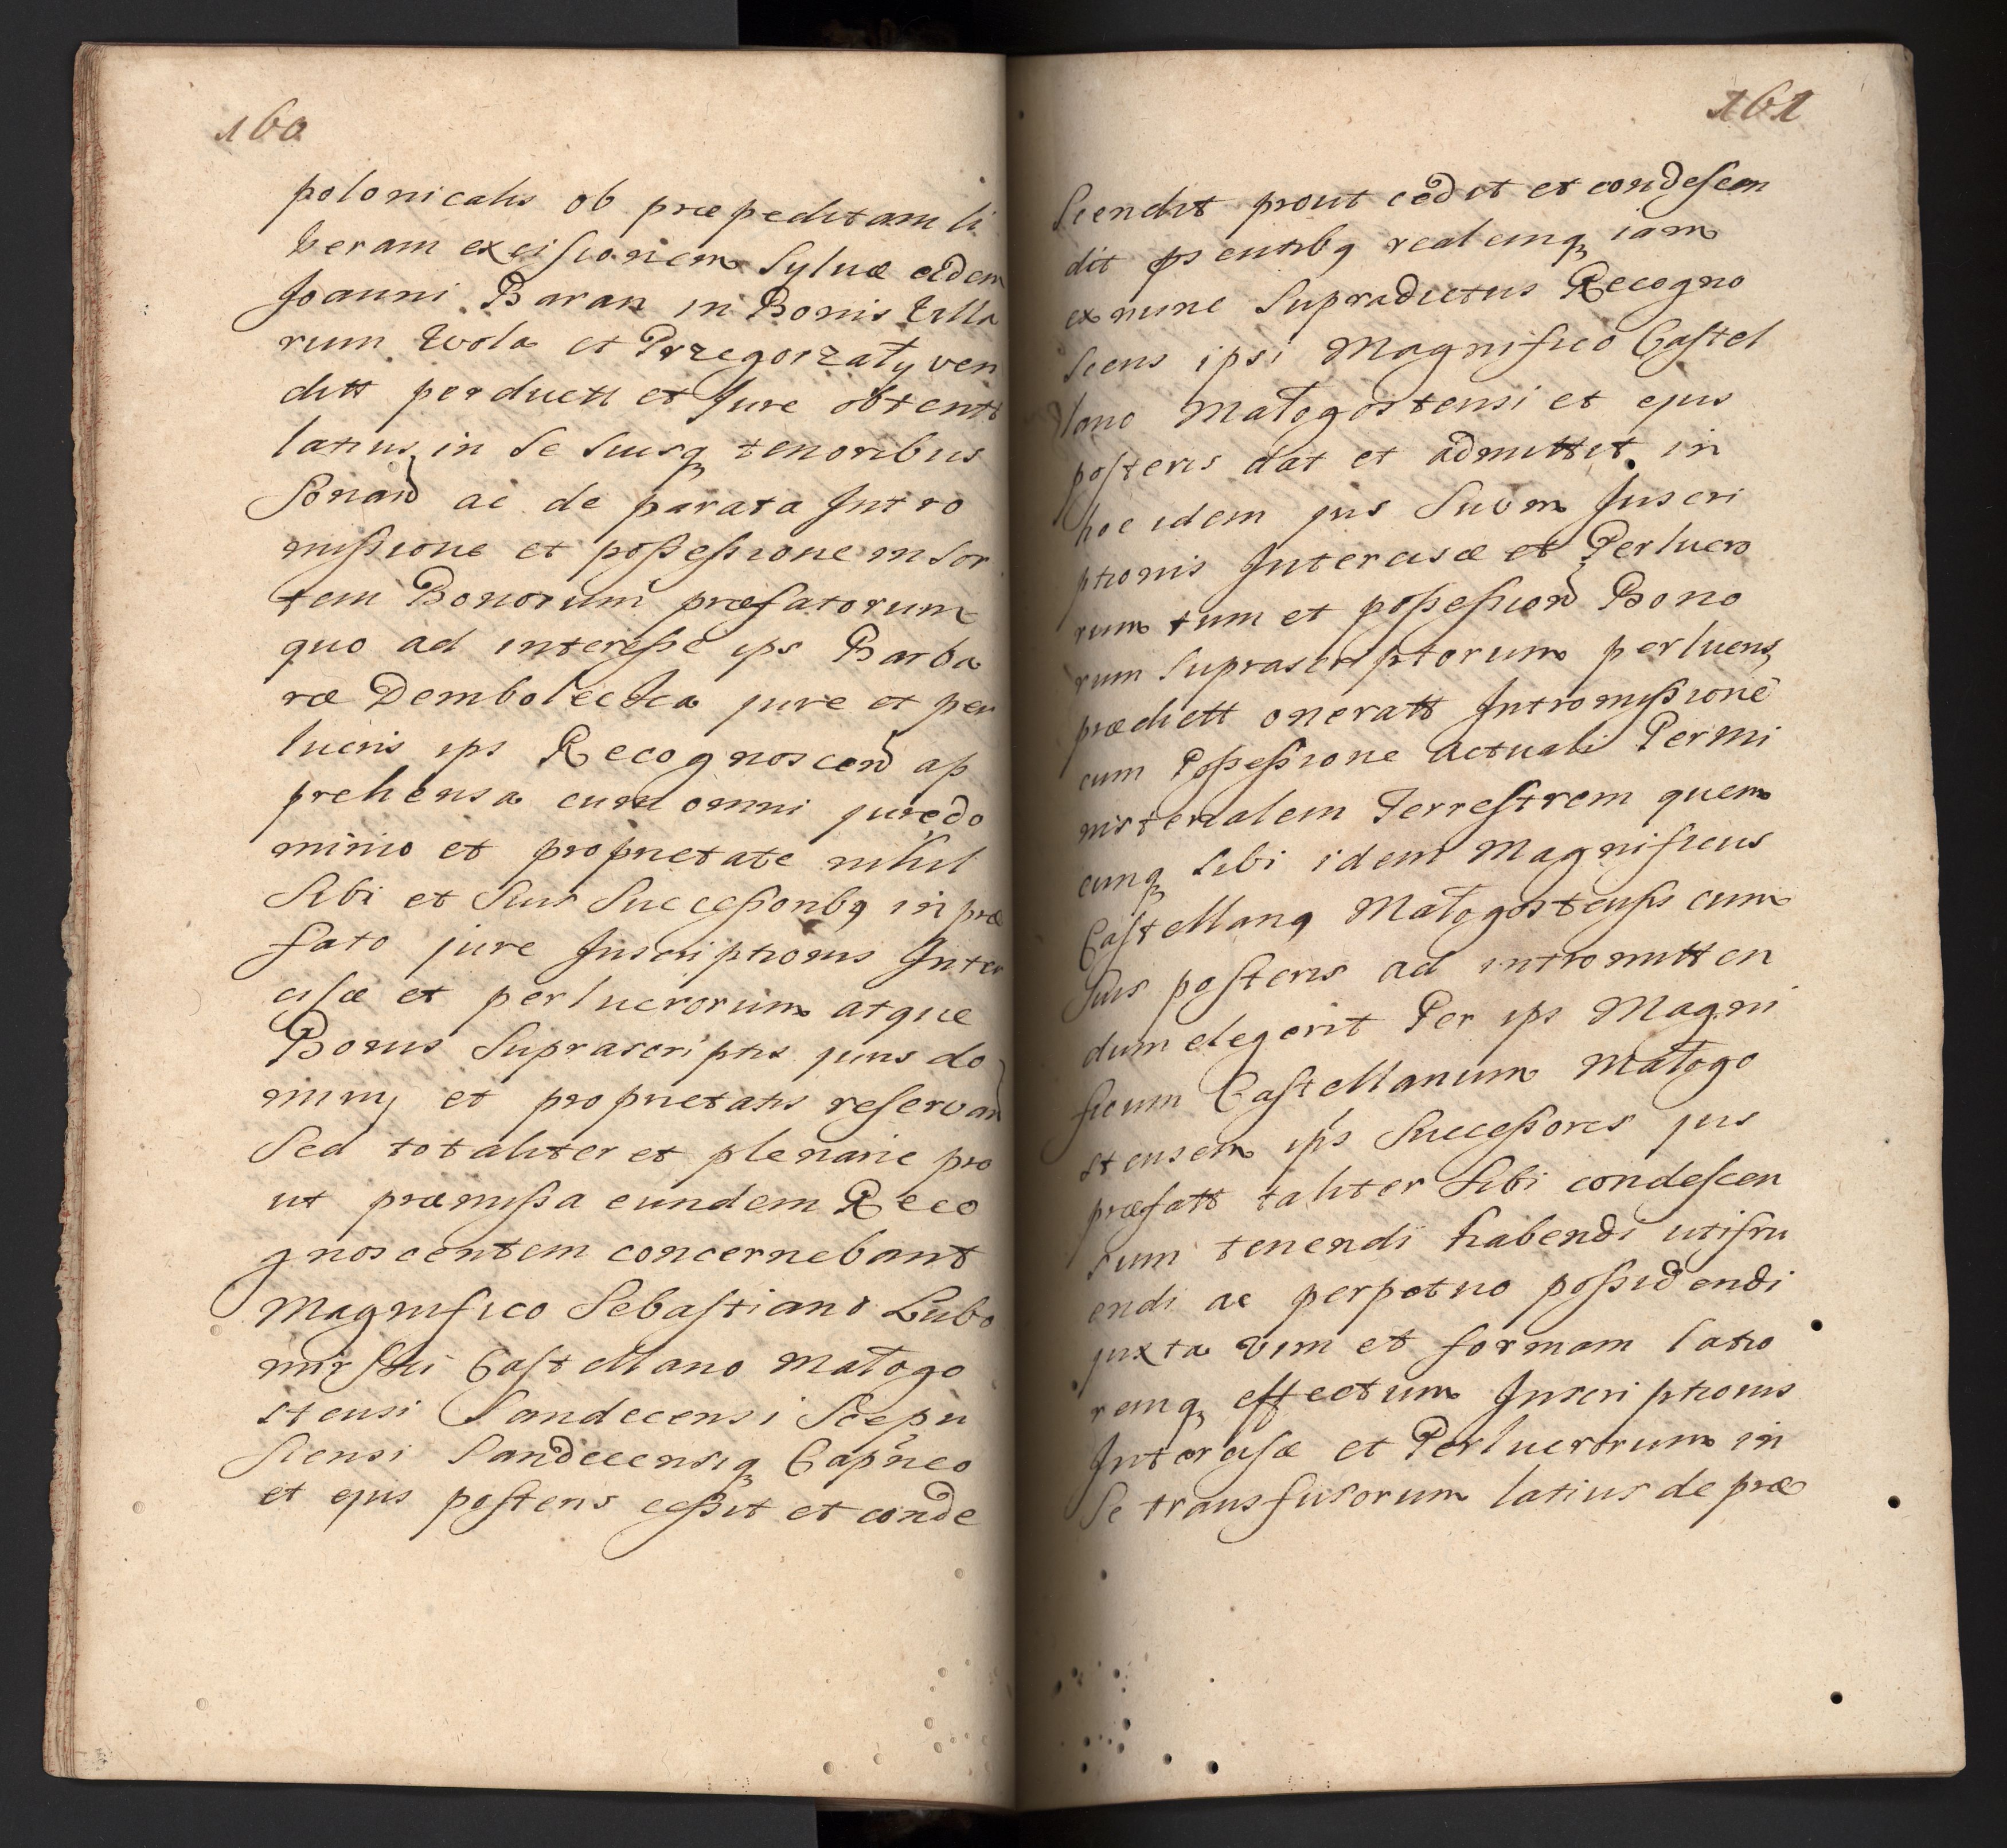 160
polonicalis ob præpeditam li
beram excisionem Sylvæ eidem
Joanni Baran in Bonis villa
rum Wola et Przegorzaly ven
ditt perducti et Jure obtentt
latius in se suisq tenoribus
Sonand ac de parata Intro
missione et possessione in sor
tem Bonorum præfatorum
quo ad interesse ips Barba
ræ Dembolecka jure et per
lucris ips Recognoscend ap
prehensa cum omni jure do
minio et proprietate nihil
Sibi et Suis Successoribq in præ
fato jure Inscriptionis Inter
cisæ et perlucrorum atque
Bonis Suprascriptis juris do
minij et proprietatis reservand
Sed totaliter et plenarie pro
ut præmissa eundem Reco
gnoscentem concernebant
Magnifico Sebastiano Lubo
mirski Castellano Małogo
stensi Sandecensi Scepu
siensi Sandecensiq Capneo
et ejus posteris cessit et conde
161
Scendit prout cedit et condescen
dit psentibq realemq iam
ex nunc Supradictus Recogno
Scens ipsi Magnifico Castel
lano Małogostensi et ejus
posteris dat et admittit in
hoc idem jus Suum Inscri
ptionis Intercisæ et Perlucro
rum tum et possession Bono
rum Suprascriptorum perlucris
prædictt oneratt Intromissione
cum Possessione actuali Per mi
nisterialem Terrestrem quem
cunq Sibi idem Magnificus
Castellanq Małogostensis cum
Suis posteris ad intromitten
dum elegerit Per ips Magni
ficum Castellanum Małogo
stensem ips Successores jus
præfatt taliter Sibi condescen
sum tenendi habendi utifru
endi ac perpetuo possidendi
juxta vim et formam latio
remq effectum Inscriptionis
Intercisæ et Perlucrorum in
Se transfusorum latius de præ